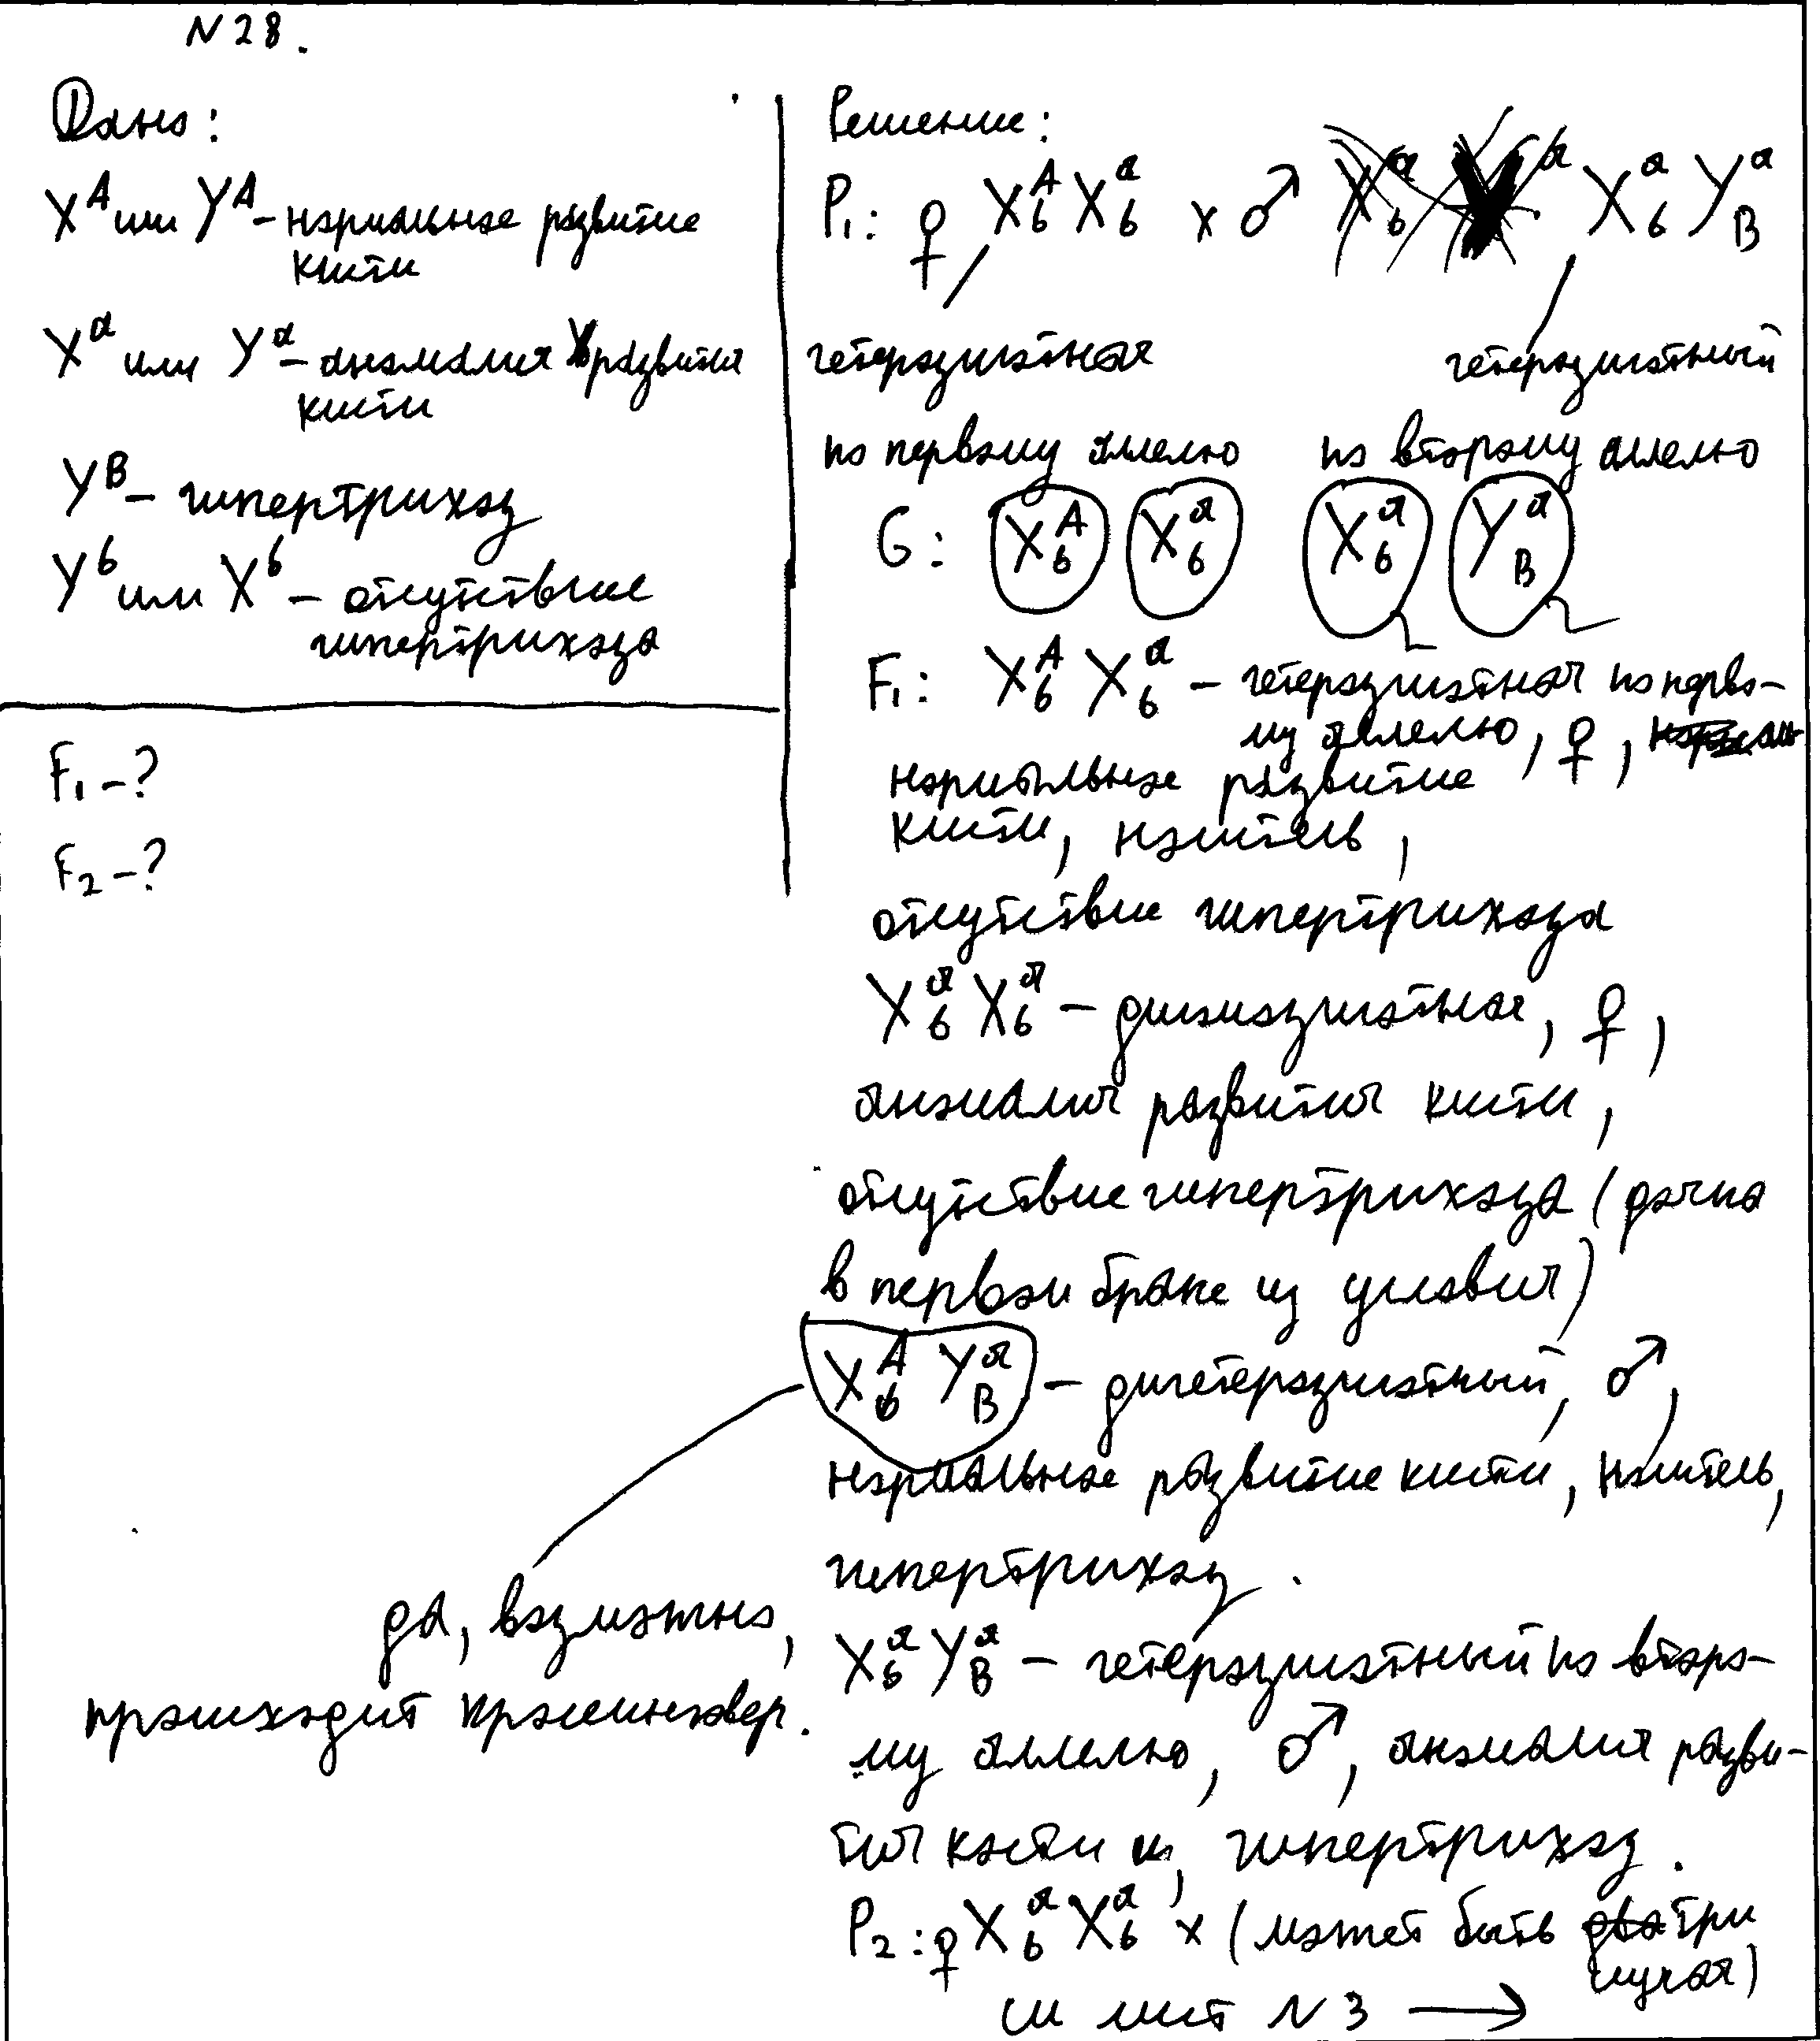 N 28.
Дано:
X^A или Y^A – нормальное развитие
кисти
X^a или Y^a – аномалия развития
кисти
Y^B – гипертрихоз
Y^b или X^b – отсутствие
гипертрихоза
F₁ – ?
F₂ – ?
Решение:
P₁: ♀ X^A_b X^a_b x ♂ X^a_b Y^a_B
гетерозиготная гетерозиготный
по первому аллелю по второму аллелю
G: X^A_b X^a_b X^a_b Y^a_B
F₁: X^A_b X^a_b – гетерозиготная по перво-
му аллелю, ♀,
нормальное развитие
кисти, носитель,
отсутствие гипертрихоза
X^a_b X^a_b – дигомозиготная, ♀,
аномалия развития кисти,
отсутствие гипертрихоза (дочка
в первом браке из условия)
X^A_b Y^a_B – дигетерозиготный, ♂,
нормальное развитие кисти, носитель,
гипертрихоз.
да, возможно,
происходит кроссинговер.
X^a_b Y^a_B – гетерозиготный по второ-
му аллелю, ♂, аномалия разви-
тия кисти, гипертрихоз.
P₂: ♀ X^a_b X^a_b x (может быть два три
случая)
см лист N 3 →